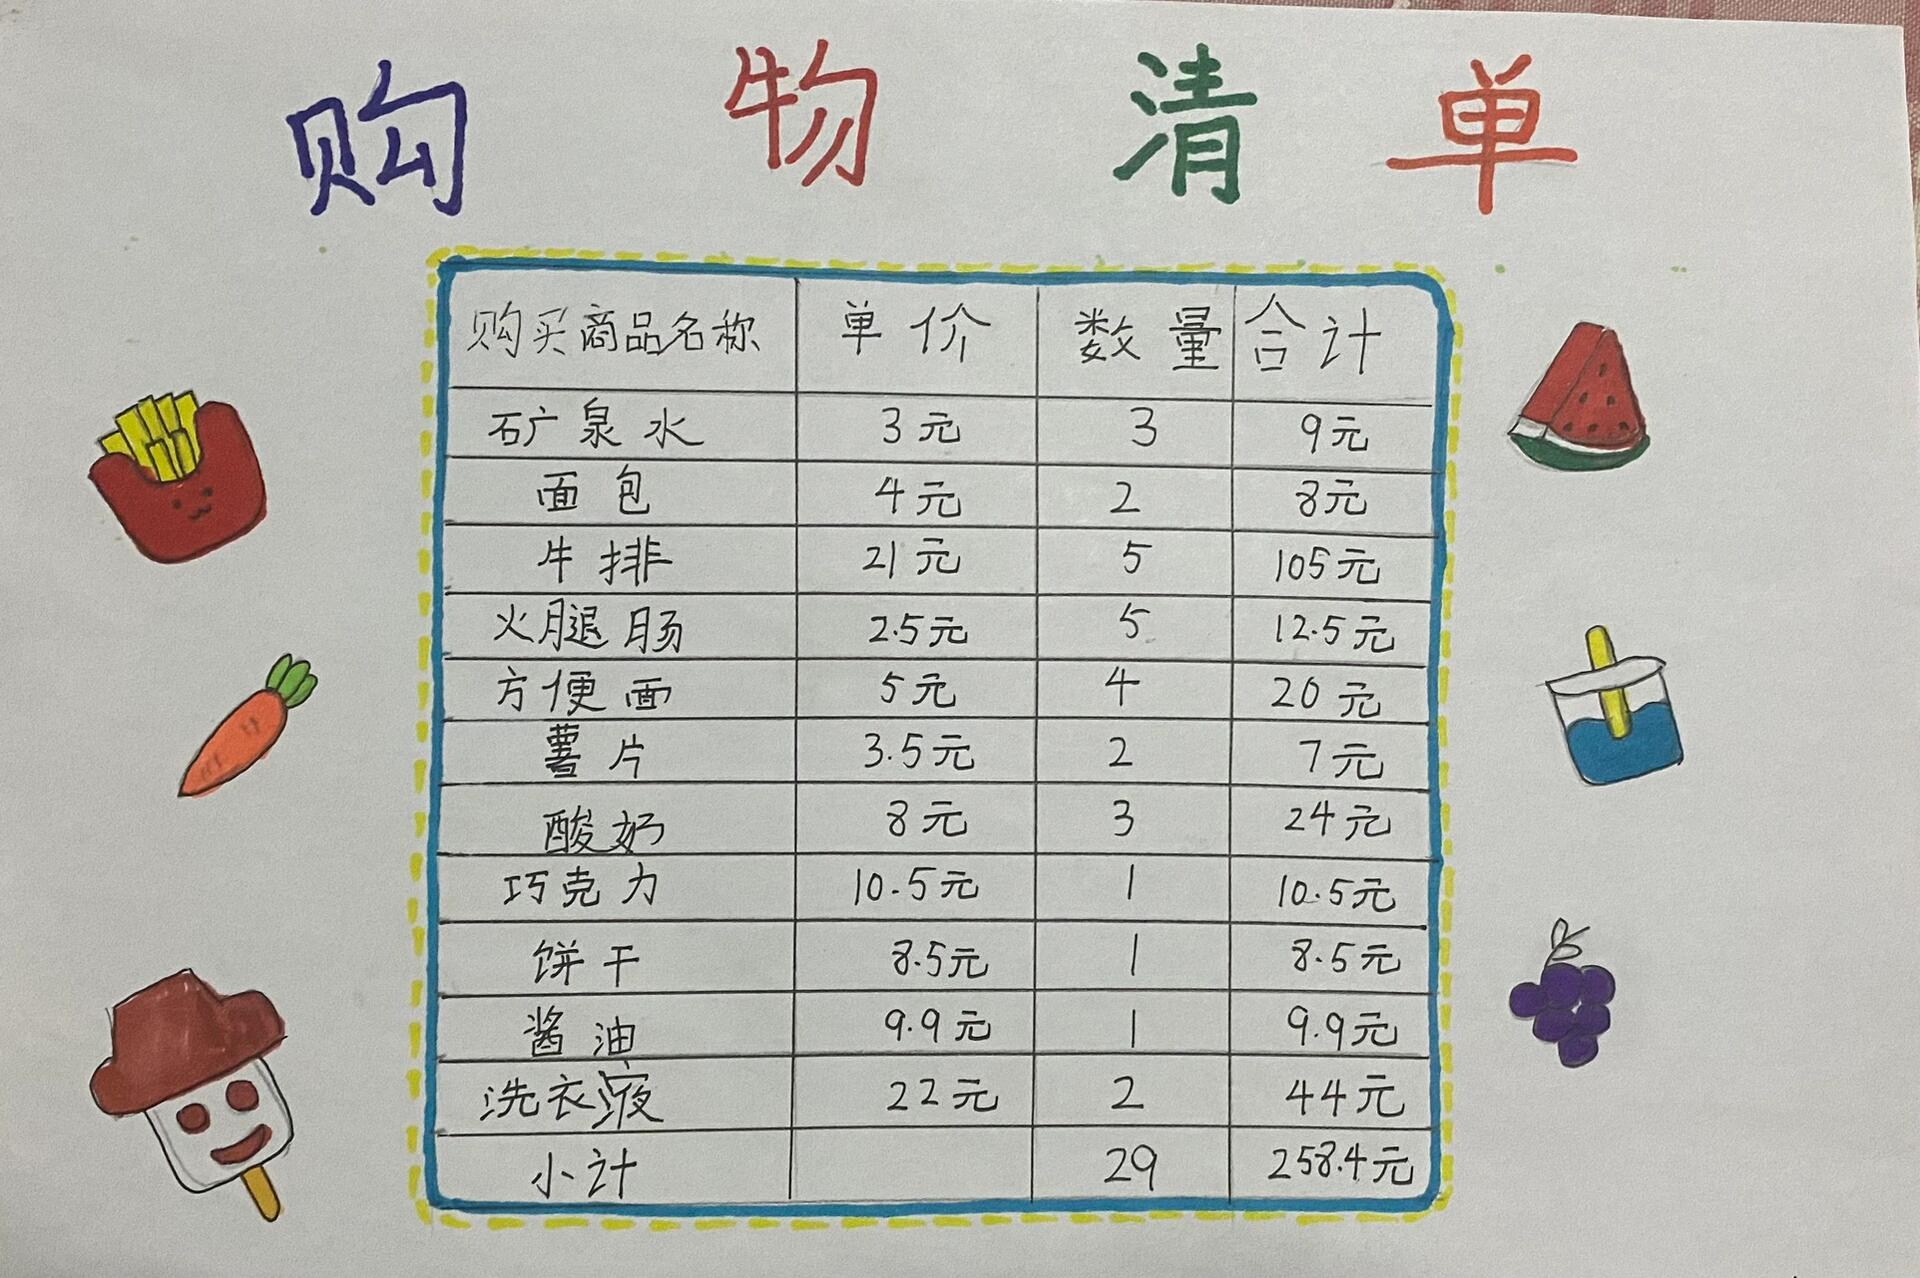 购物清单
购买商品名称 单价 数量 合计
矿泉水 3元 3 9元
面包 4元 2 8元
牛排 21元 5 105元
火腿肠 2.5元 5 12.5元
方便面 5元 4 20元
薯片 3.5元 2 7元
酸奶 8元 3 24元
巧克力 10.5元 1 10.5元
饼干 8.5元 1 8.5元
酱油 9.9元 1 9.9元
洗衣液 22元 2 44元
小计 29 258.4元